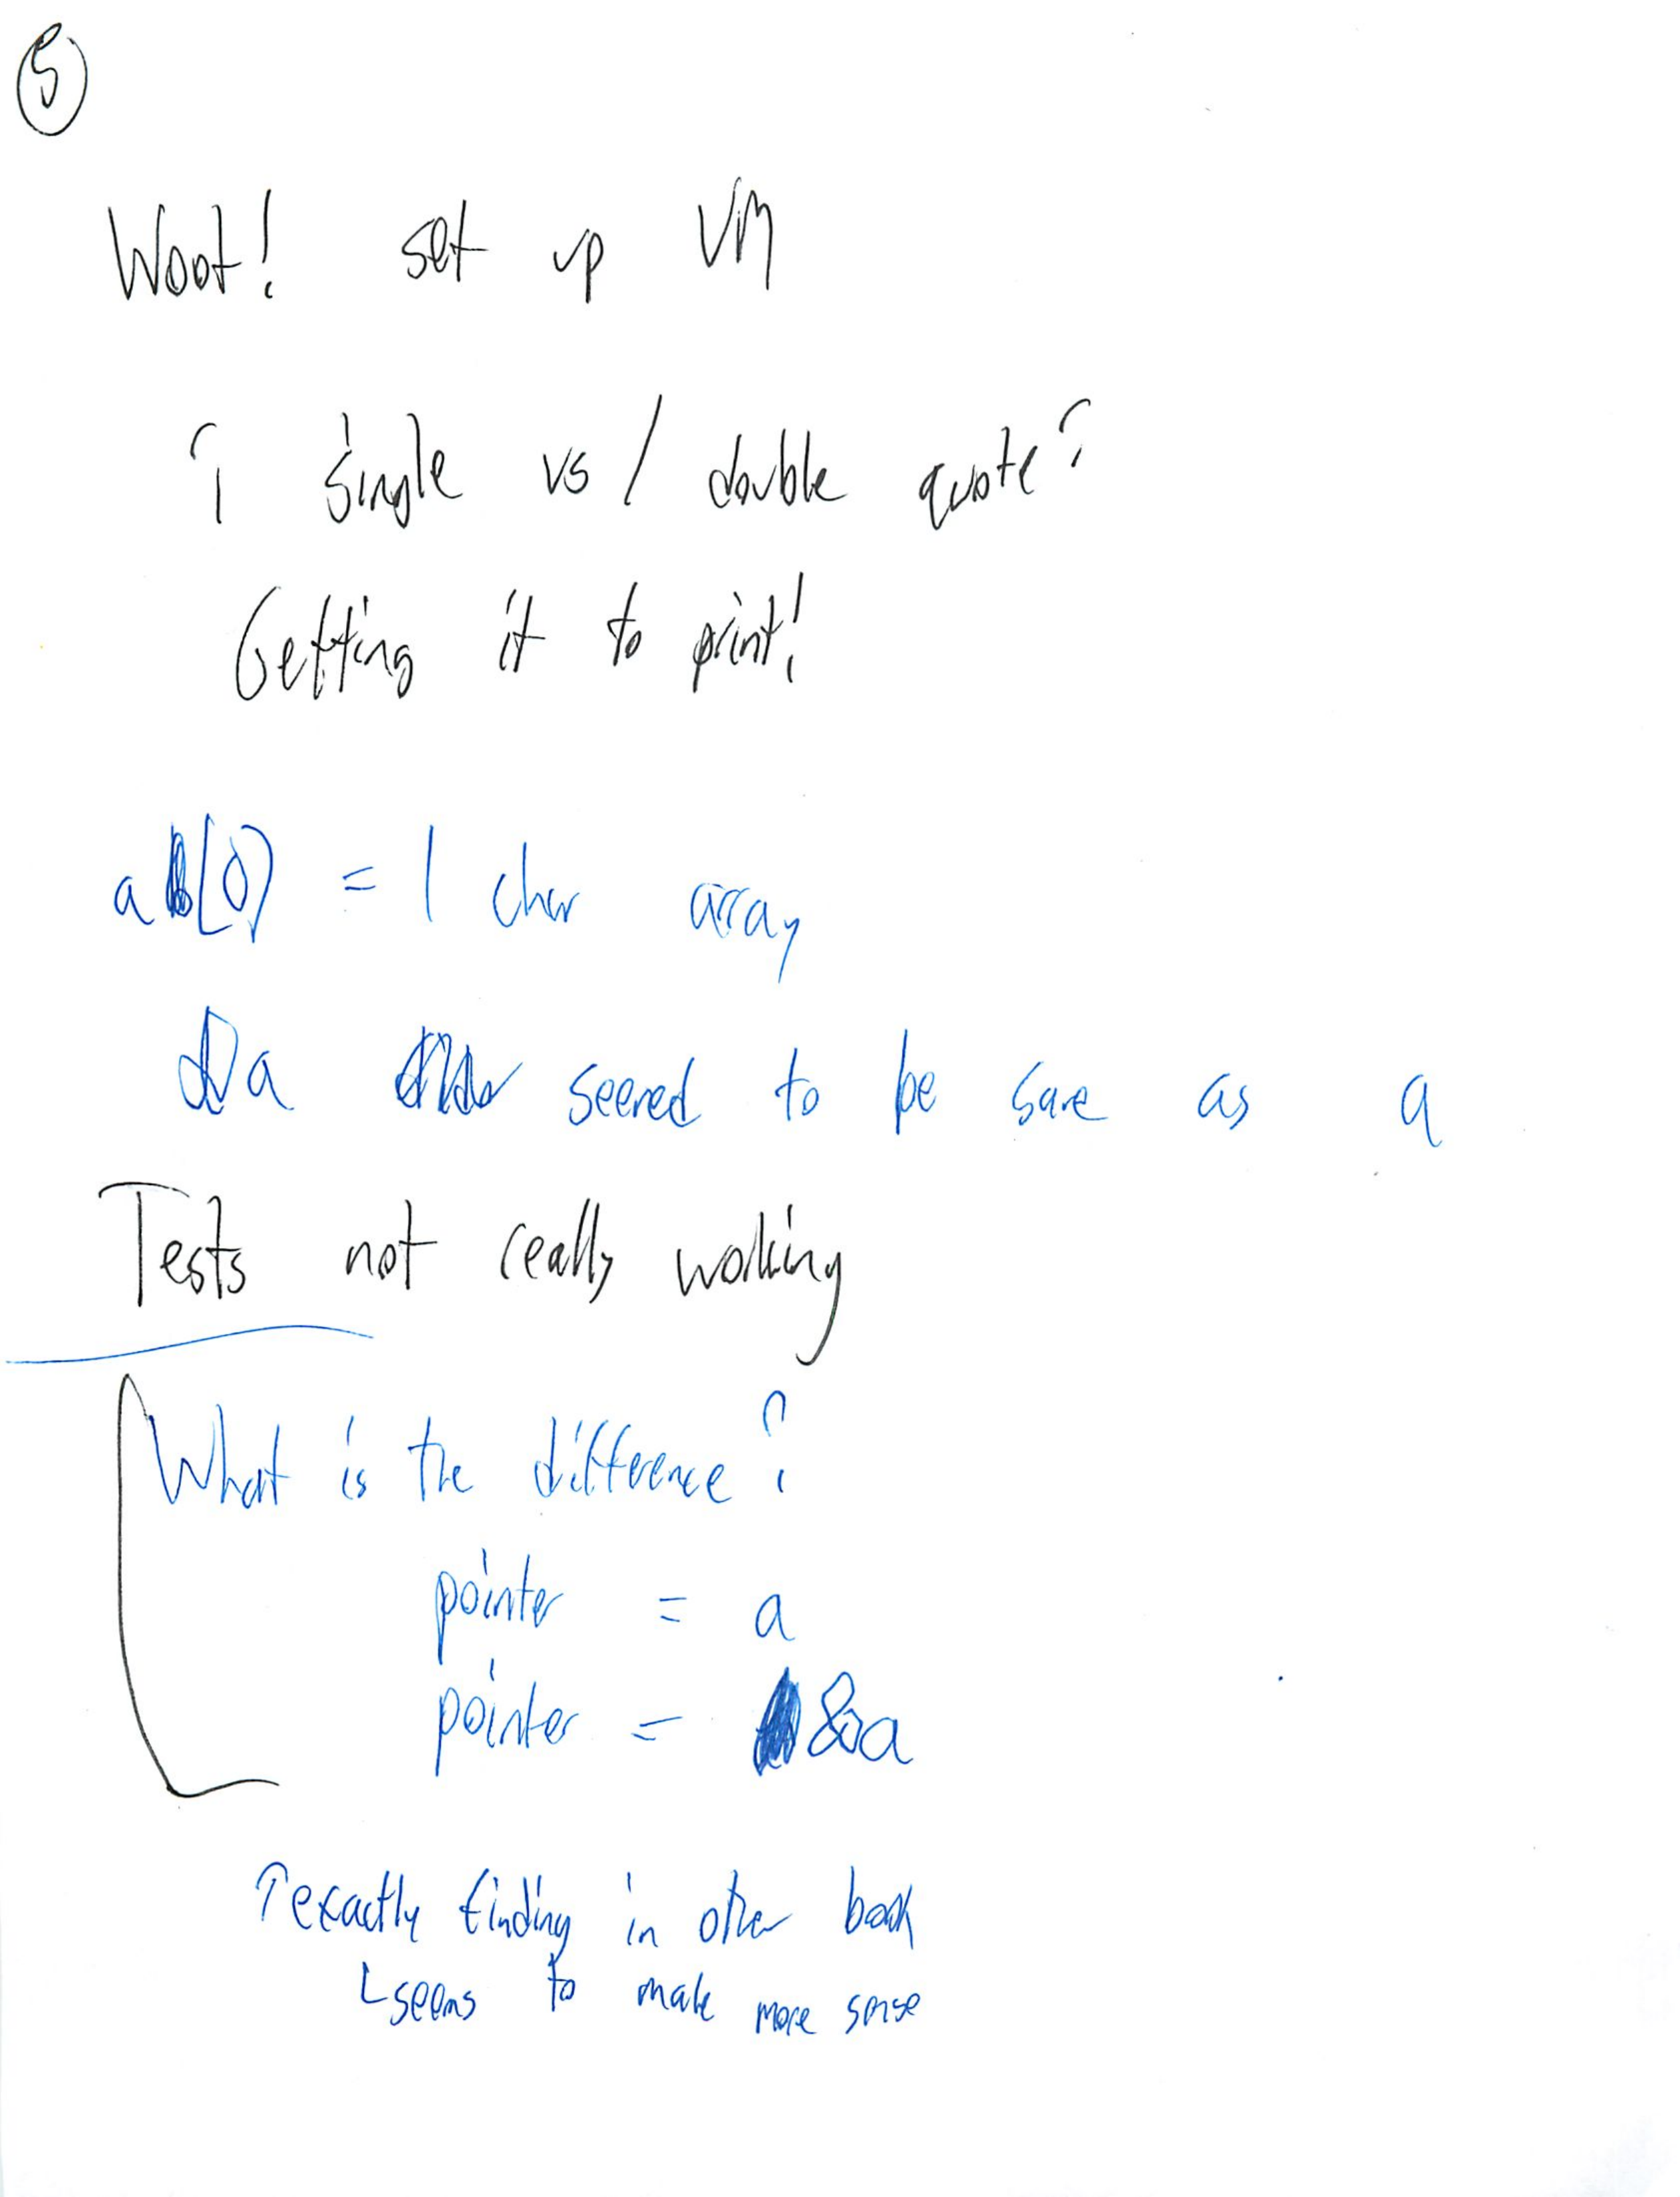 5
Woot! set up VM
? single vs / double quote?
Getting it to print!
a[0] = 1 char array
&a seemed to be same as a
Tests not really working
What is the difference?
pointer = a
pointer = &a
↑exactly finding in other book
↳seems to make more sense